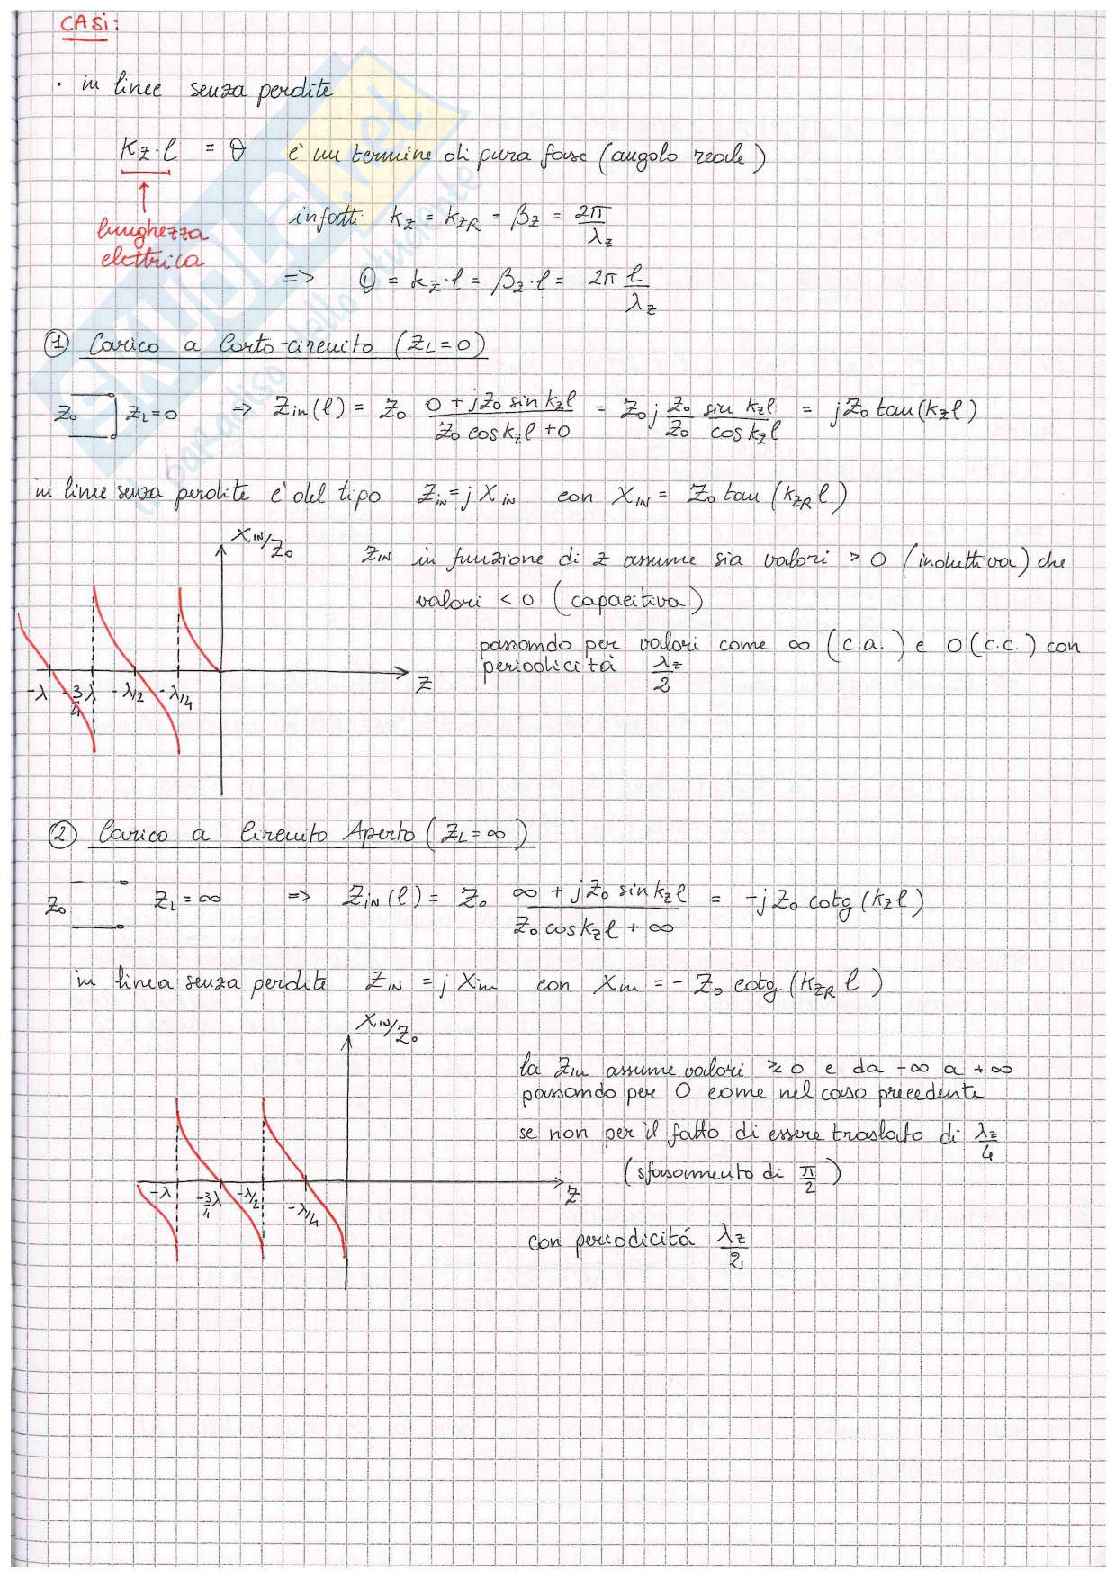 CASI:
· in linee senza perdite
kz·l = θ è un termine di pura fase (angolo reale)
lunghezza
elettrica
infatti kz = kzR = βz = 2π/λz
=> θ = kz·l = βz·l = 2π l/λz
① Carico a Corto-circuito (ZL=0)
Z0 ZL=0 → Zin(l) = Z0 (0 + jZ0 sin kzl)/(Z0 cos kzl + 0) = Z0 j Z0/Z0 sin kzl/cos kzl = jZ0 tan(kzl)
in linee senza perdite è del tipo ZIN = j XIN con XIN = Z0 tan(kzR l)
XIN/Z0
ZIN in funzione di z assume sia valori > 0 (induttiva) che
valori < 0 (capacitiva)
passando per valori come ∞ (c.a.) e 0 (c.c.) con
periodicità λz/2
-λ -3/4λ -λ/2 -λ/4 Z
② Carico a Circuito Aperto (ZL=∞)
Z0 ZL=∞ => ZIN(l) = Z0 (∞ + jZ0 sin kzl)/(Z0 cos kzl + ∞) = -jZ0 cotg(kzl)
in linea senza perdite ZIN = j Xin con Xin = - Z0 cotg(kzR l)
XIN/Z0
la Zin assume valori ≷ 0 e da -∞ a +∞
passando per 0 come nel caso precedente
se non per il fatto di essere traslato di λz/4
(sfasamento di π/2)
-λ -3/4λ -λ/2 -λ/4 Z
con periodicitá λz/2